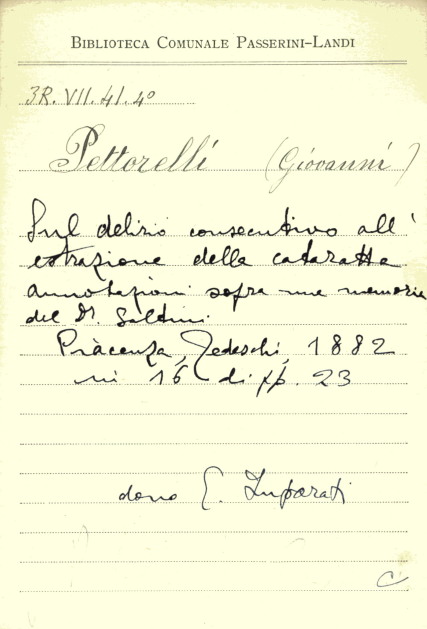 BIBLIOTECA COMUNALE PASSERINI-LANDI
3R. VII. 41. 4º
Pettorelli (Giovanni)
Sul delirio consecutivo all'
estrazione della cataratta
annotazioni sopra una memoria
del Dr. Saltini.
Piacenza, Tedeschi, 1882
in 16 di pp. 23
dono E.
C